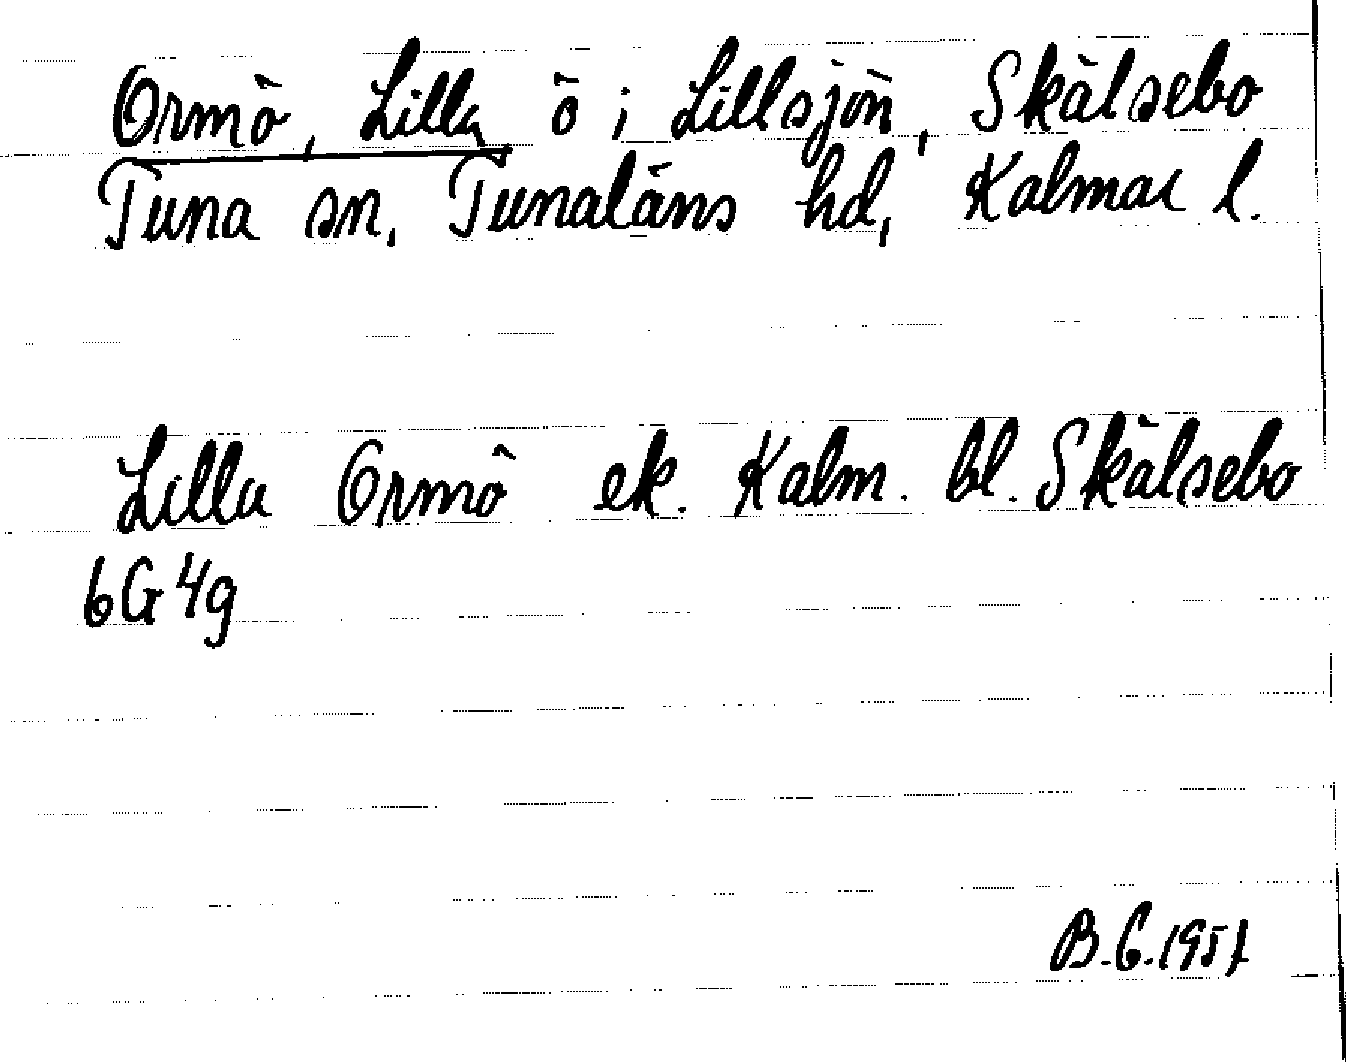 Ormö, Lilla ö i Lillsjön, Skälsebo
Tuna sn, Tunaläns hd, Kalmar l.
Lilla Ormö ek. Kalm. bl. Skälsebo
6G4g
B.G.1957